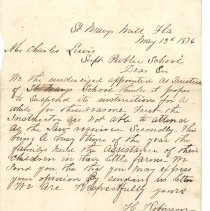 St Marys Mill, Fla
May 13th 1876
Mr. Charles Lewis
Supt Public School
Dear Sir
We the undersigned appointed as Trustees
of St Marys School think it proper
to suspend its instructions for a
while for these reasons. First the
Instructor are not able to attend
as the Law requires Secondly. This
being a busy time of the year the
families need the assistance of their
children in their little farms. We
send you this that you may express
your opinion by sending us later
We are Respectfully yours